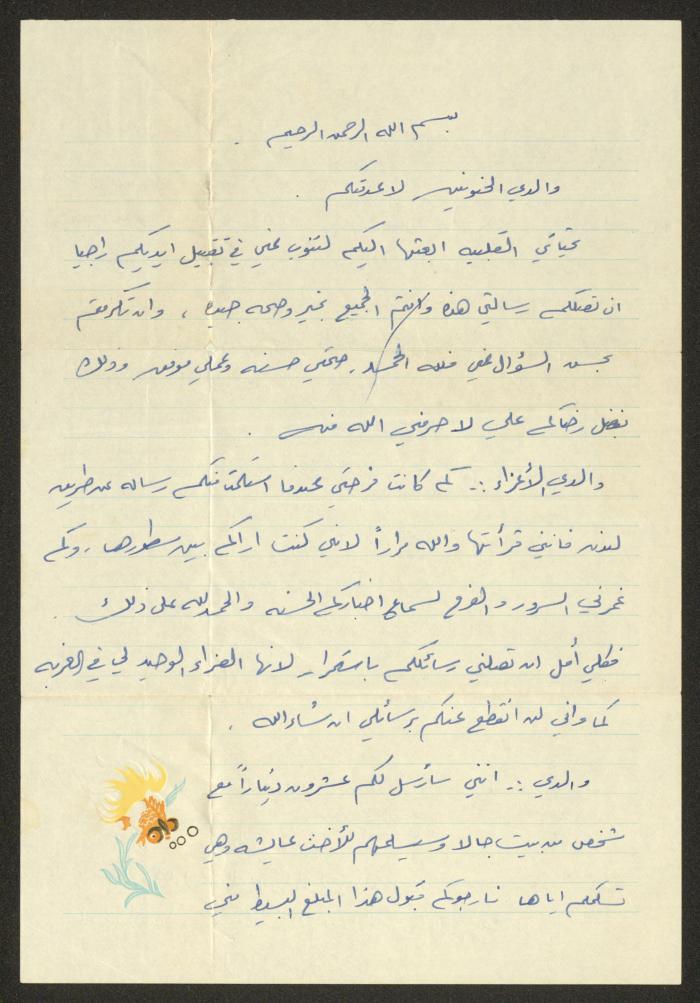 بسم الله الرحمن الرحيم .
والدي الحنونين لا عدمتكم .
تحياتي القلبيه ابعثها اليكم لتنوب عني في تقبيل ايديكم راجيا
ان تصلكم رسالتي هذه وانتم الجميع بخير وصحه جيده ، وان تكرمتم
بحسن السؤال عني فلله الحمد ، صحتي حسنه وعملي موفق وذلك
بفضل رضاكم علي لا حرمني الله منه .
والدي الأعزاء :. كم كانت فرحتي عندما استلمت منكم رساله عن طريق
لندن فانني قرأتها والله مراراً لانني كنت اراكم بين سطورها ، وكم
غمرني السرور والفرح لسماع اخباركم الحسنه والحمد لله على ذلك .
فكلي أمل ان تصلني رسائلكم باستمرار لانها العزاء الوحيد لي في الغربه
كما واني لن انقطع عنكم برسائلي ان شاء الله .
والدي :. انني سأرسل لكم عشرون ديناراً مع
شخص من بيت جالا وسيسلمهم للأخت عايشه وهي
تسلمكم اياها فارجوكم قبول هذا المبلغ البسيط مني